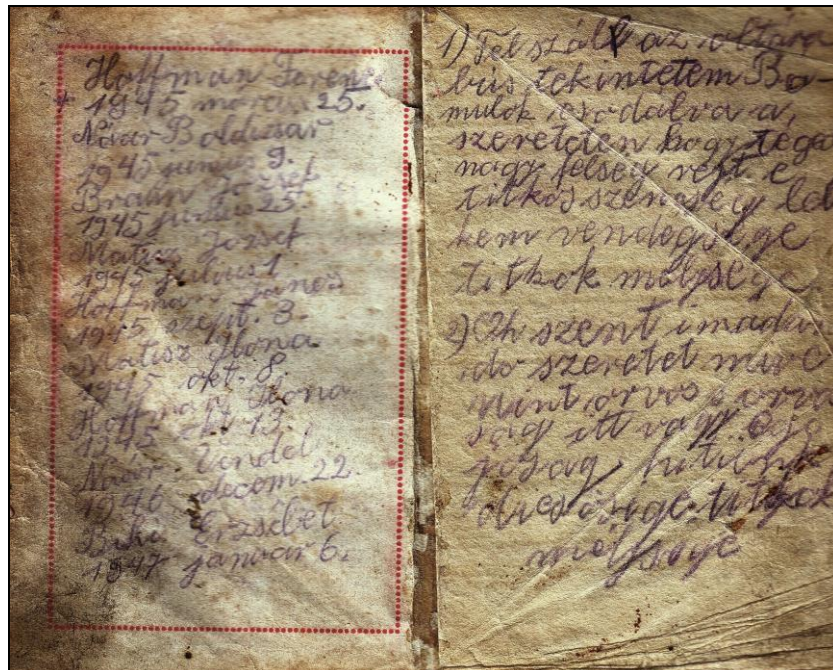 Hoffman Ferenc
1945 marcius 25.
Návar Boldisar
1945 junius 9.
Braun Jozsef
1945 junius 25.
Matisz Jozsef
1945 julius 1.
Hoffman Janos
1945 szept. 3.
Matisz Ilona
1945 okt. 8.
Hoffman Ilona
1945 okt 13.
Navar Vendel
1946 decem. 22.
Erzsebet
1947 januar 6.
1) Fel száll az oltára
tekintetem Ba
mulok csodalva a
szereteten hogy tega
nagy felseg rejt e
titkos szentseg lel
kem vendegsege
titkok mejsege
2) Oh szent imadan
do szeretet mire
mint orvos s orva
sag itt vagy
josag, hitünk
dicsösige titkok
mejsege